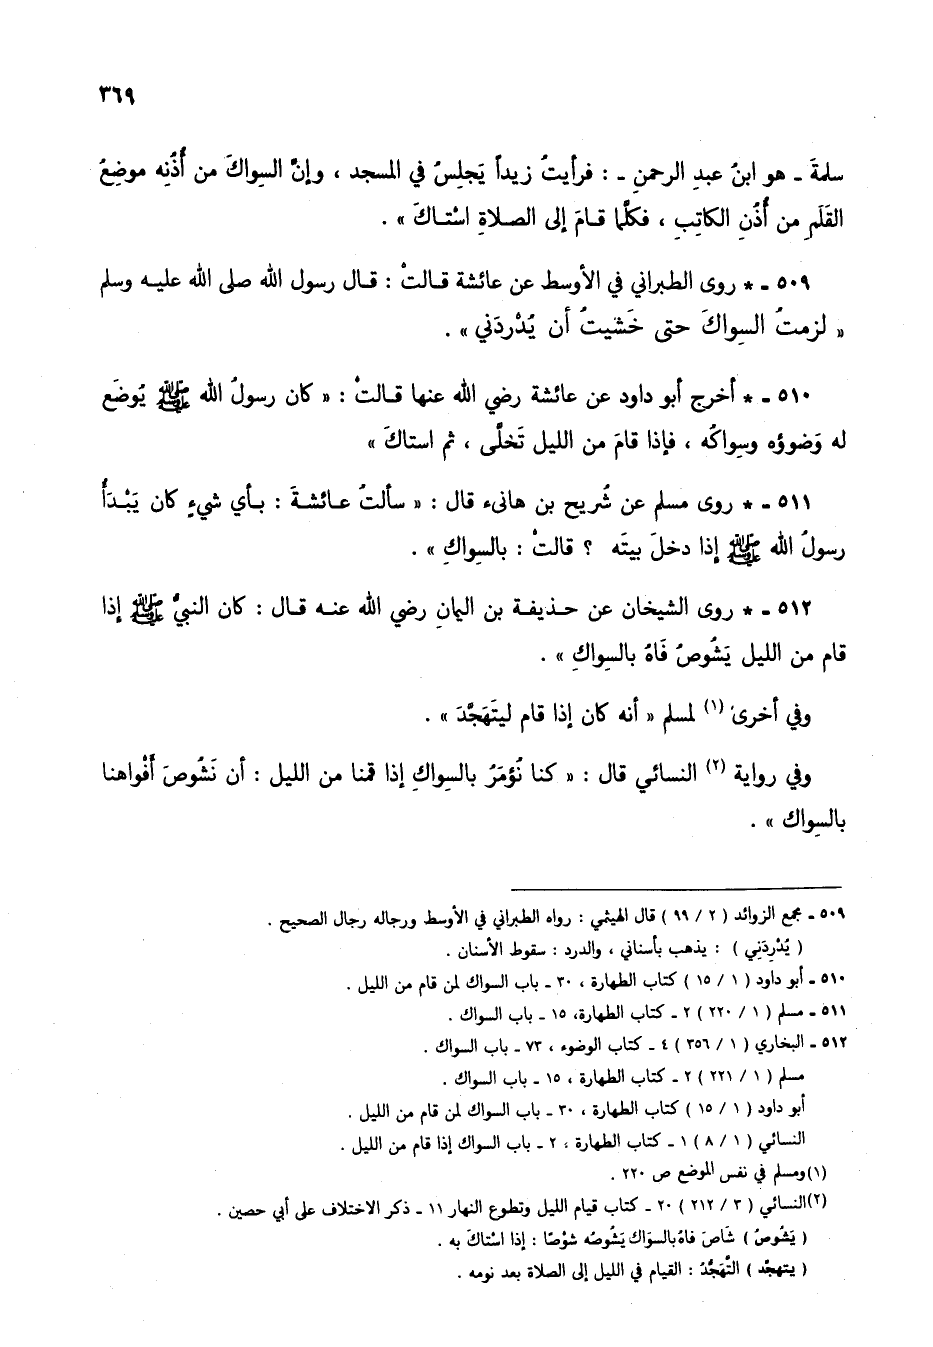 ٣٦٩
سلمةَ ـ هو ابنُ عبدِ الرحمنِ ـ : فرأيتُ زيداً يَجلِسُ في المسجد ، وإنَّ السواكَ من أُذُنِه موضِعُ
القَلَمِ من أُذُنِ الكاتِبِ ، فكلَّما قـامَ إلى الصلاةِ اسْتـاكَ » .
٥٠٩ ـ * روى الطبراني في الأوسط عن عائشة قـالتْ : قـال رسول الله صلى الله عليـه وسلم
« لزمتُ السواكَ حتى خَشيتُ أن يُدْرِدَني » .
٥١٠ ـ * أخرج أبو داود عن عائشة رضي الله عنها قـالتْ : « كان رسولُ الله ﷺ يُوضَع
له وَضوؤه وسِواكُه ، فإذا قامَ من الليل تَخلَّى ، ثم استاكَ »
٥١١ ـ * روى مسلم عن شُريح بن هانىء قال : « سألتُ عـائشـةَ : بـأي شيءٍ كان يَبْـدَأُ
رسولُ الله ﷺ إذا دخلَ بيتَه ؟ قالتْ : بالسِواكِ » .
٥١٢ ـ * روى الشيخان عن حـذيفـة بن اليمانِ رضي الله عنـه قـال : كان النبيُّ ﷺ إذا
قام من الليل يَشُوصُ فَاهُ بالسِواكِ » .
وفي أخرىٰ (١) لمسلم « أنه كان إذا قام ليتَهَجَّدَ » .
وفي رواية (٢) النسائي قال : « كنا نُؤمَرُ بالسِواكِ إذا قمنا من الليل : أن نَشُوصَ أَفْواهنا
بالسِواك » .
٥٠٩ ـ مجمع الزوائد ( ٢ / ٩٩ ) قال الهيثمي : رواه الطبراني في الأوسط ورجاله رجال الصحيح .
( يُدْرِدَنِي ) : يذهب بأسناني ، والدرد : سقوط الأسنان .
٥١٠ ـ أبو داود ( ١ / ١٥ ) كتاب الطهارة ، ٣٠ ـ باب السواك لمن قام من الليل .
٥١١ ـ مسلم ( ١ / ٢٢٠ ) ٢ ـ كتاب الطهارة، ١٥ ـ باب السواك .
٥١٢ ـ البخاري ( ١ / ٣٥٦ ) ٤ ـ كتاب الوضوء ، ٧٣ ـ باب السواك .
مسلم ( ١ / ٢٢١ ) ٢ ـ كتاب الطهارة ، ١٥ ـ باب السواك .
أبو داود ( ١ / ١٥ ) كتاب الطهارة ، ٣٠ ـ باب السواك لمن قام من الليل .
النسائي ( ١ / ٨ ) ١ ـ كتاب الطهارة ، ٢ ـ باب السواك إذا قام من الليل .
(١) ومسلم في نفس الموضع ص ٢٢٠ .
(٢) النسائي ( ٣ / ٢١٢ ) ٢٠ ـ كتاب قيام الليل وتطوع النهار ١١ ـ ذكر الاختلاف على أبي حصين .
( يَشُوصُ ) شَاصَ فاهُ بالسوَاك يَشُوصُه شوْصًا : إذا اسْتاكَ به .
( يتهجّد ) التَّهَجُّدُ : القيام في الليل إلى الصلاة بعد نومه .